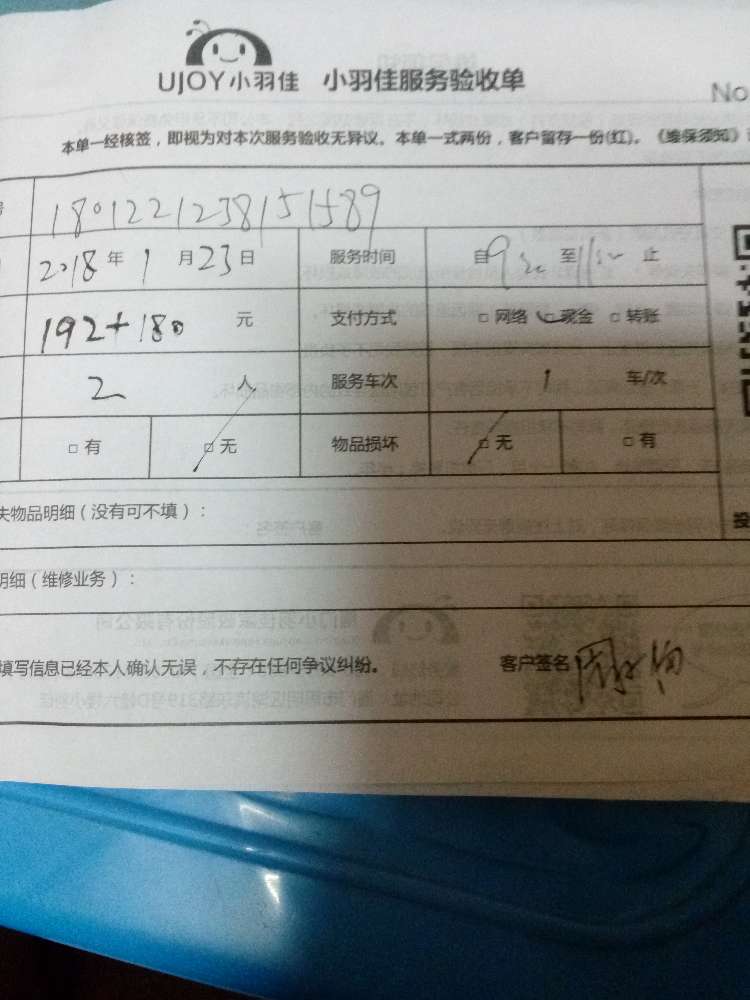 UJOY小羽佳 小羽佳服务验收单
No
本单一经核签，即视为对本次服务验收无异议。本单一式两份，客户留存一份(红)。《维保须知》
号 180122123815
2018年1月23日 服务时间 自9 至11 止
192+180 元 支付方式 □网络 □现金 □转账
2 人 服务车次 1 车/次
□有 □无 物品损坏 □无 □有
失物品明细（没有可不填）：
明细（维修业务）：
填写信息已经本人确认无误，不存在任何争议纠纷。 客户签名